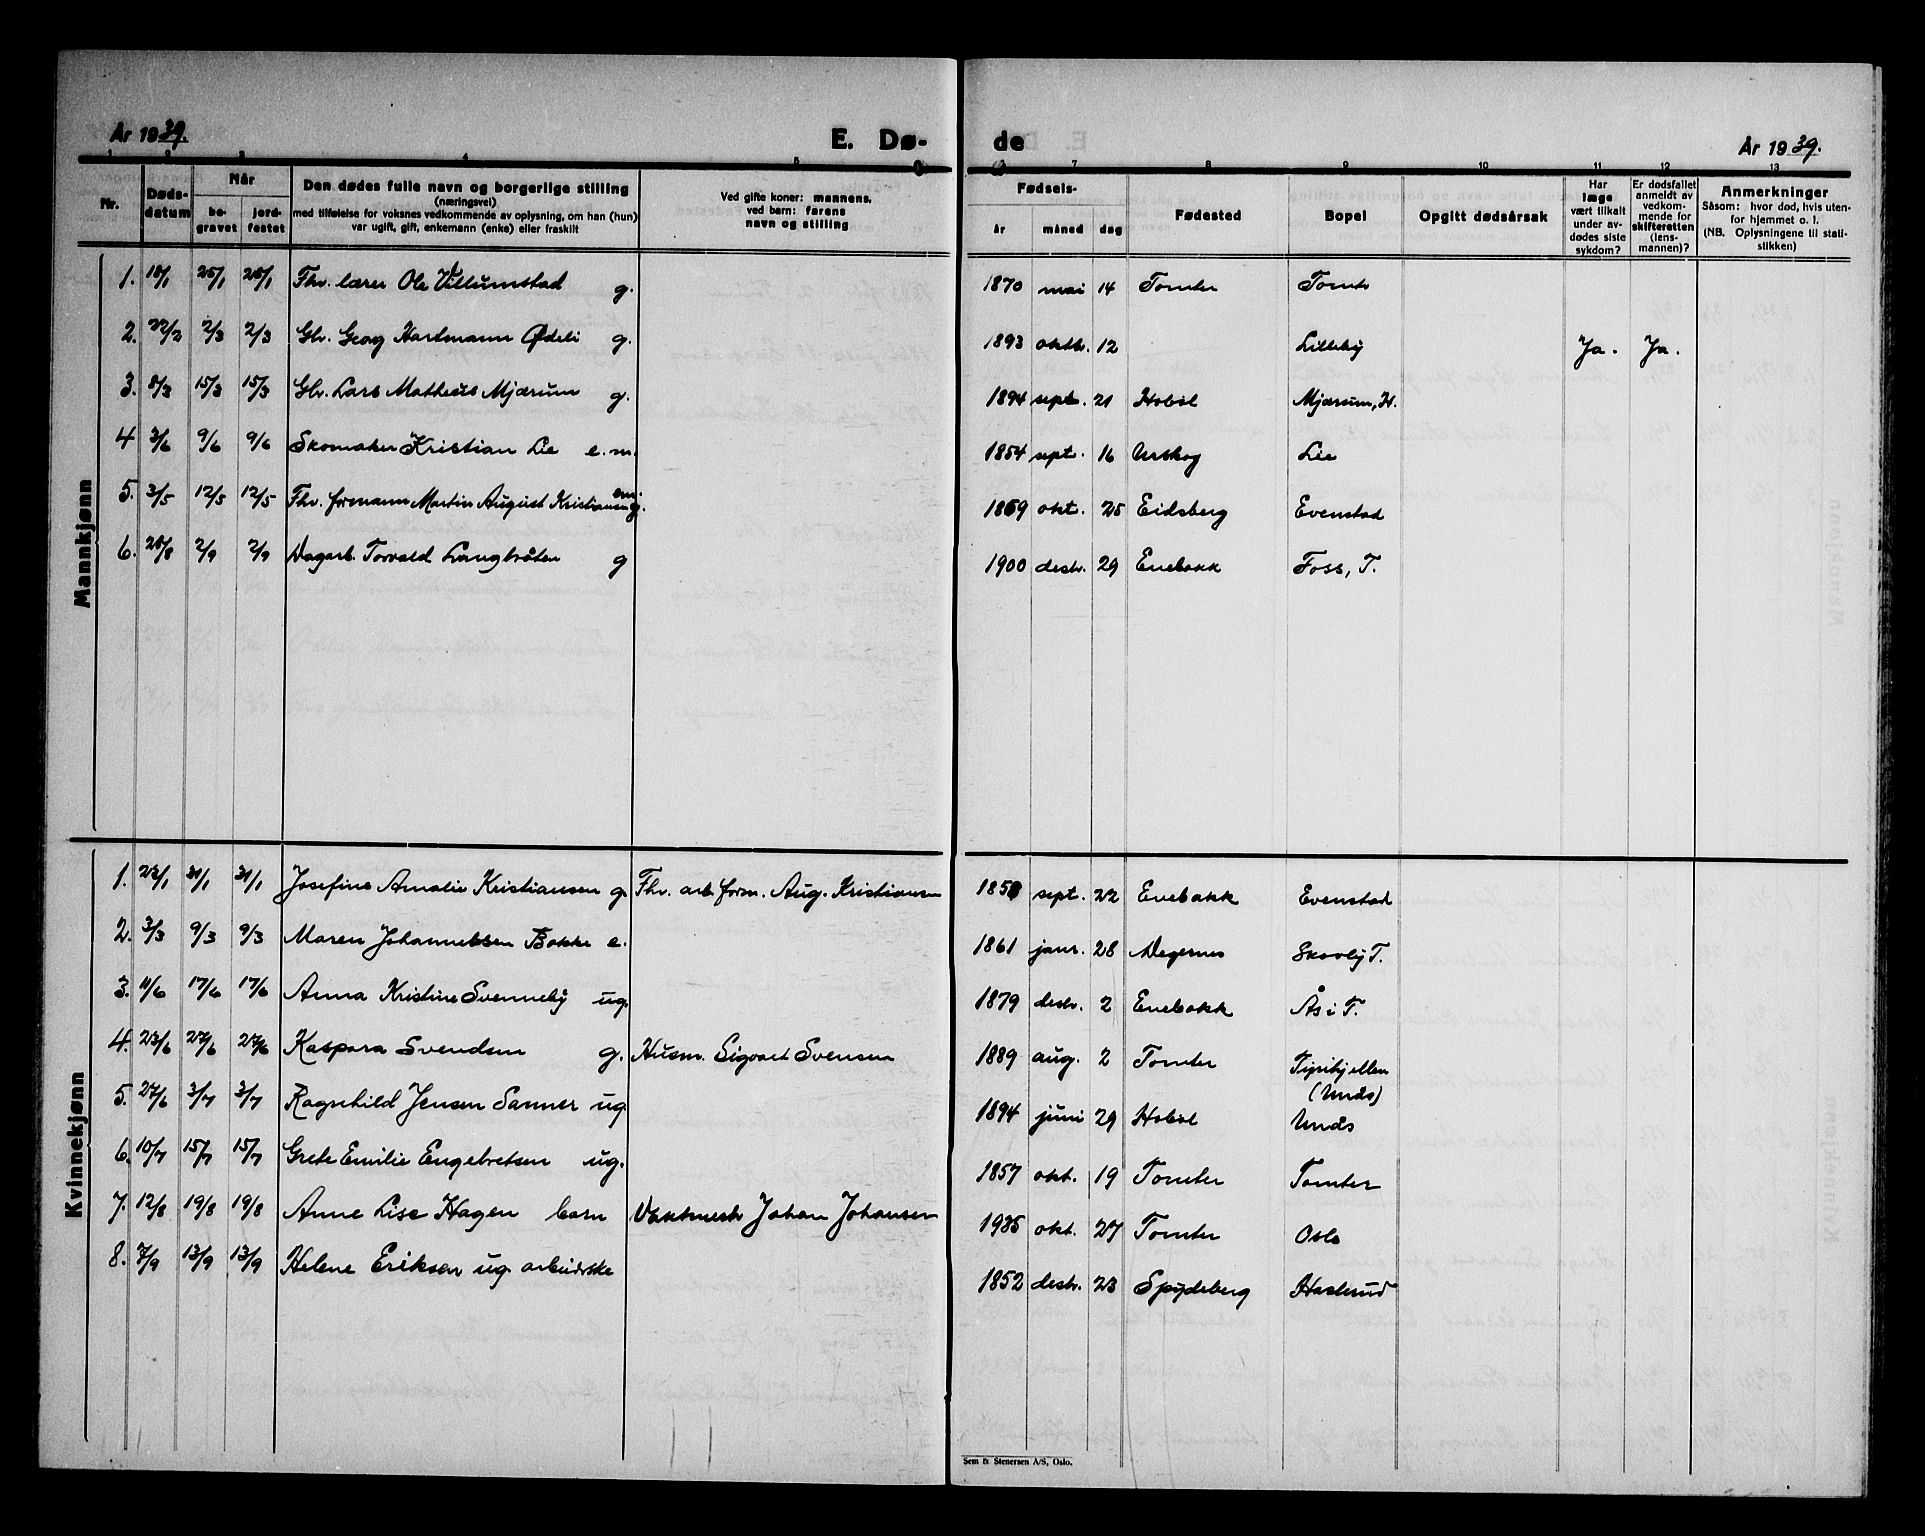 År 1939.
E. Dø-
de
År 1939.
1 2 3 4 5 6 7 8 9 10 11 12 13
Nr.
Døds-
datum
Når
be-
gravet
jord-
festet
Den dødes fulle navn og borgerlige stilling
(næringsvei)
med tilføielse for voksnes vedkommende av oplysning, om han (hun)
var ugift, gift, enkemann (enke) eller fraskilt
Ved gifte koner: mannens,
ved barn: farens
navn og stilling
Fødsels-
år måned dag
Fødested
Bopel
Opgitt dødsårsak
Har
læge
vært tilkalt
under av-
dødes siste
sykdom?
Er dødsfallet
anmeldt av
vedkom-
mende for
skifteretten
(lens-
mannen)?
Anmerkninger
Såsom: hvor død, hvis uten-
for hjemmet o. l.
(NB. Oplysningene til stati-
stikken)
Mannkjønn
1. 18/1 25/1 25/1 Fhv. lærer Ole Villumstad g. 1870 mai 14 Tomter Tomter
2. 22/2 2/3 2/3 Gbr. Georg Hartmann Ødeli g. 1893 oktb. 12 Lilleby Ja. Ja.
3. 8/3 15/3 15/3 Gbr. Lars Matheus Mjærum g. 1894 sept. 21 Hobøl Mjærum, H.
4 3/6 9/6 9/6 Skomaker Kristian Lie e.m. 1854 sept. 16 Urskog Lie
5. 3/5 12/5 12/5 Fhv. formann Martin August Kristiansen em. g. 1869 okt. 25 Eidsberg Evenstad
6. 28/8 2/9 2/9 Dagarb. Torvald Langbråten g 1900 desbr. 29 Enebakk Foss, T.
Kvinnekjønn
1. 23/1 31/1 31/1 Josefine Amalie Kristiansen g. Fhv. arb. form. Aug. Kristiansen 1858 sept. 22 Enebakk Evenstad
2. 3/3 9/3 9/3 Maren Johannessen Bakke e. 1861 janr. 28 Degernes Skovly T.
3. 11/6 17/6 17/6 Anna Kristine Svenneby ug. 1879 desbr. 2 Enebakk Ås i T.
4. 23/6 27/6 27/6 Kaspara Svendsen g. Husm. Sigvart Svensen 1889 aug. 2 Tomter Tipihjellen
(Unås)
5. 27/6 3/7 3/7 Ragnhild Jensen Sanner ug. 1894 juni 29 Hobøl Unås
6. 10/7 15/7 15/7 Grete Emilie Engebretsen ug. 1857 okt. 19 Tomter Tomter
7. 12/8 19/8 19/8 Anne Lise Hagen barn Vaktmestr Johan Johansen 1935 okt. 27 Tomter Oslo
8. 7/9 13/9 13/9 Helene Eriksen ug. arbeiderske 1852 desbr. 23 Spydeberg Haslerud
Sem & Stenersen A/S, Oslo.